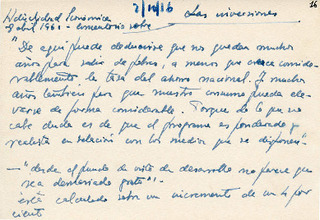 Actualidad Económica 2/10/16 Las inversiones 26
8 abril 1961 - comentario sobre
"De aquí puede deducirse que no quedan muchos
años para salir de pobre, a menos que crezca conside-
rablemente la tasa del ahorro nacional. Y muchos
años también para que nuestro consumo pueda ele-
varse de forma considerable. Porque de lo que no
cabe duda es de que el programa es ponderado y
realista en relación con los medios que se disponen".
— "desde el punto de vista del desarrollo no parece que
sea demasiado grato"
está calculado sobre un incremento de un 6 por
ciento